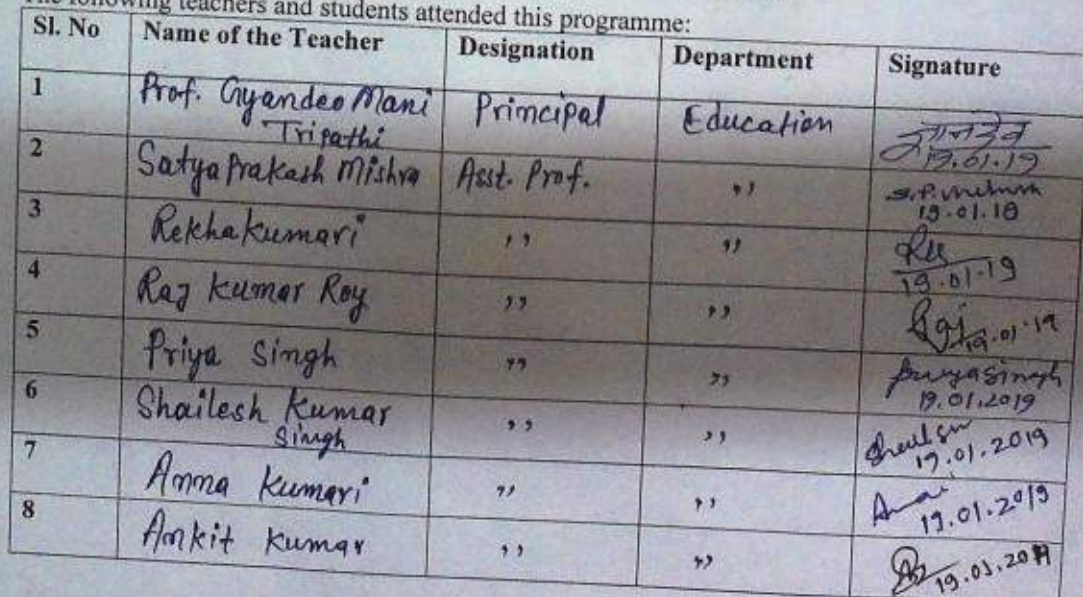 The following teachers and students attended this programme:
Sl. No Name of the Teacher Designation Department Signature
1 Prof. Gyandeo Mani Tripathi Principal Education ज्ञानदेव 19.01.19
2 Satya Prakash Mishra Asst. Prof. ,, 19.01.18
3 Rekha Kumari ,, ,, 19.01.19
4 Raj Kumar Roy ,, ,, Raj 19.01.19
5 Priya Singh ,, ,, priyasingh 19.01.2019
6 Shailesh Kumar Singh ,, ,, 19.01.2019
7 Anna Kumari ,, ,, 19.01.2019
8 Ankit Kumar ,, ,, 19.01.2019